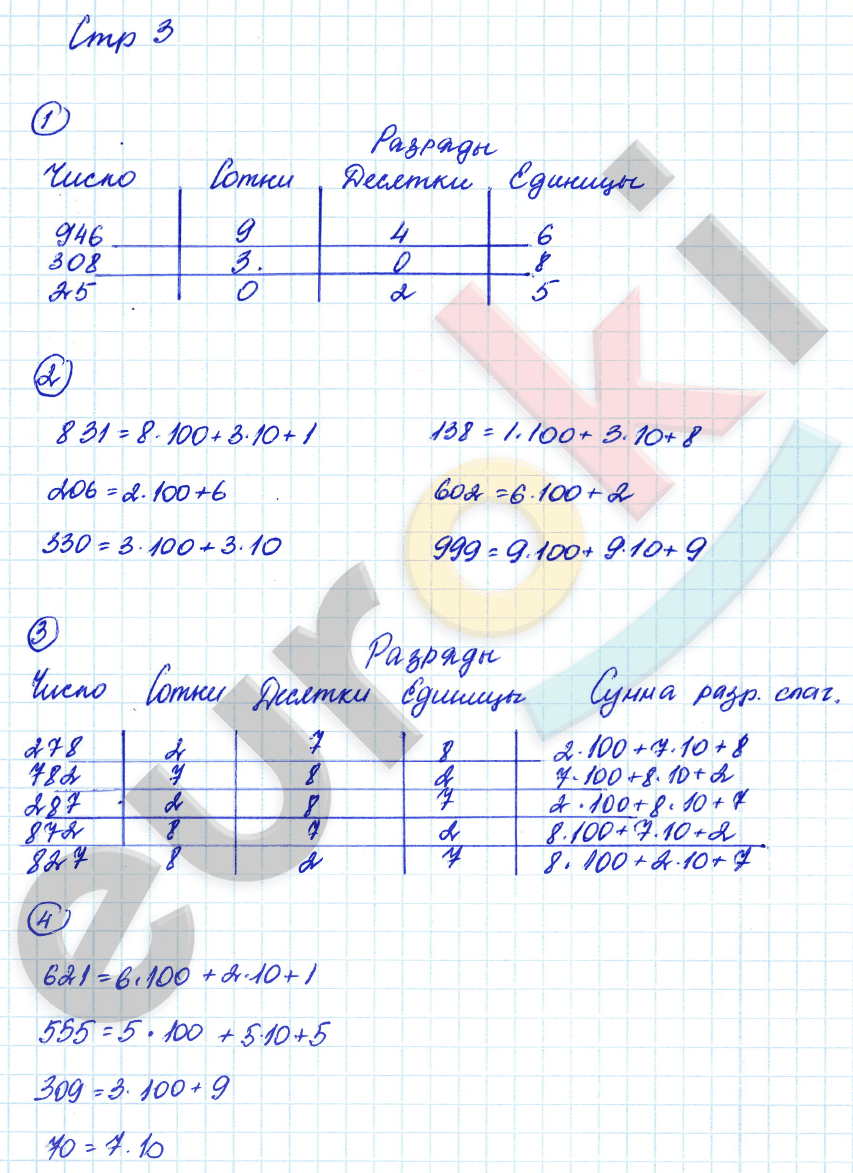 Стр 3
1
Разряды
Число Сотни Десятки Единицы
946 9 4 6
308 3 0 8
25 0 2 5
2
831 = 8·100 + 3·10 + 1 138 = 1·100 + 3·10 + 8
206 = 2·100 + 6 602 = 6·100 + 2
330 = 3·100 + 3·10 999 = 9·100 + 9·10 + 9
3
Разряды
Число Сотни Десятки Единицы Сумма разр. слаг.
278 2 7 8 2·100 + 7·10 + 8
782 7 8 2 7·100 + 8·10 + 2
287 2 8 7 2·100 + 8·10 + 7
872 8 7 2 8·100 + 7·10 + 2
827 8 2 7 8·100 + 2·10 + 7
4
621 = 6·100 + 2·10 + 1
555 = 5·100 + 5·10 + 5
309 = 3·100 + 9
70 = 7·10
euroki